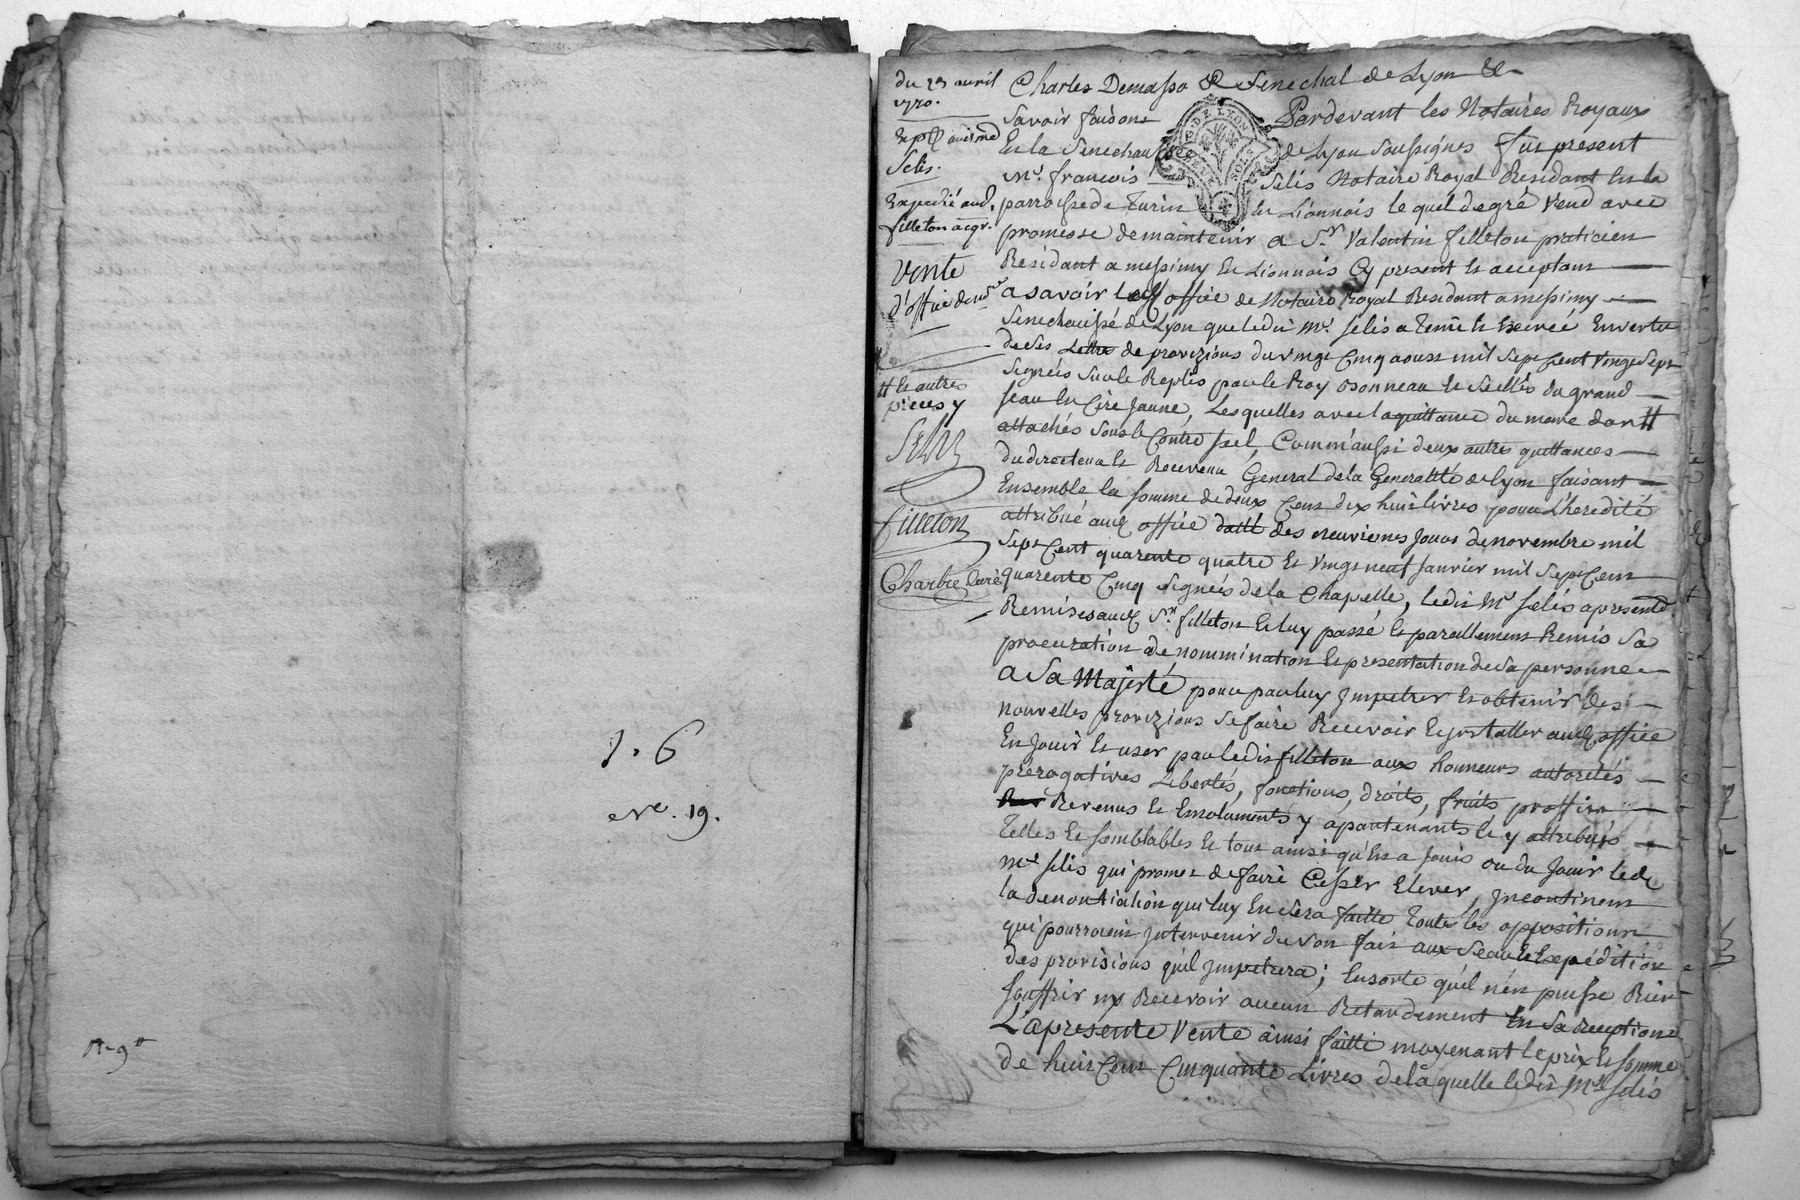 1. 6
No. 19.
du 23 avril
Charles Demasso & Senechal de Lyon &c
savoir faisons
Pardevant les Notaires Royaux
En la Senechaussée
de Lyon soussignés fut present
Me. francois
Selés Notaire Royal Residant En la
parroisse de Turin
En Lionnois le quel degré Vend avec
promesse de maintenir a Sr. Valentin filleton praticien
Residant a messimy En Lionnois Cy present et acceptant
a savoir led office de Notaire Royal Residant a messimy
Senechaussé de Lyon que ledit Me. Selés a Tenu et Exercé En vertu
de ses Lettres de provizions du vingt Cinq aoust mil Sept Cent vingt Sept
Signées Sur le Replis par le Roy osonneau et Scellés du grand
seau En Cire Jaune, Lesquelles avec la quittance du marc dor #
attachés Sous le Contre Scel, Comm'aussi deux autres quittances
du directeur et Receveur General de la Generalité de Lyon faisant
Ensemble la somme de deux Cent dix huit livres pour L'heredité
attribué aud office datté des neuviemes Jours de novembre mil
Sept Cent quarente quatre et vingt neuf Janvier mil Sept Cent
quarente Cinq signées de la Chapelle, ledit Me Selés a presentt
Remises aud Sr. filleton et luy passé et parellement Remis Sa
procuration de nommination et presentation de Sa personne
a Sa Majesté pour par luy Impetrer et obtenir des
nouvelles provizions se faire Recevoir et ynstaller aud office
En Jouir et user par ledit filleton aux honneurs autorités
prérogatives Libertés, fonctions, droits, fruits proffits
Revenus et Emoluments y apartenants et y attribués
Telles et semblables et tout ainsi qu'En a Joui ou du Jouir led
Me Selés qui promet de faire Cesser Elever, Incontinent
la denontiation qui luy En Sera faitte Toutes les oppositions
qui pourroient Intervenir de son fait aux Seau et Expédition
des provisions qu'il Impetrera; En sorte qu'il n'en puisse Rien
souffrir ny Recevoir aucun Retardement En Sa reception
L'apresente Vente ainsi faitte moyenant le prix et somme
de huit Cent Cinquante Livres de la quelle ledit Me Selés
Selés.
Expedié aud.
filleton acqr.
Vente
d'office de nore
# Et autres
pieces y
Selés
filleton